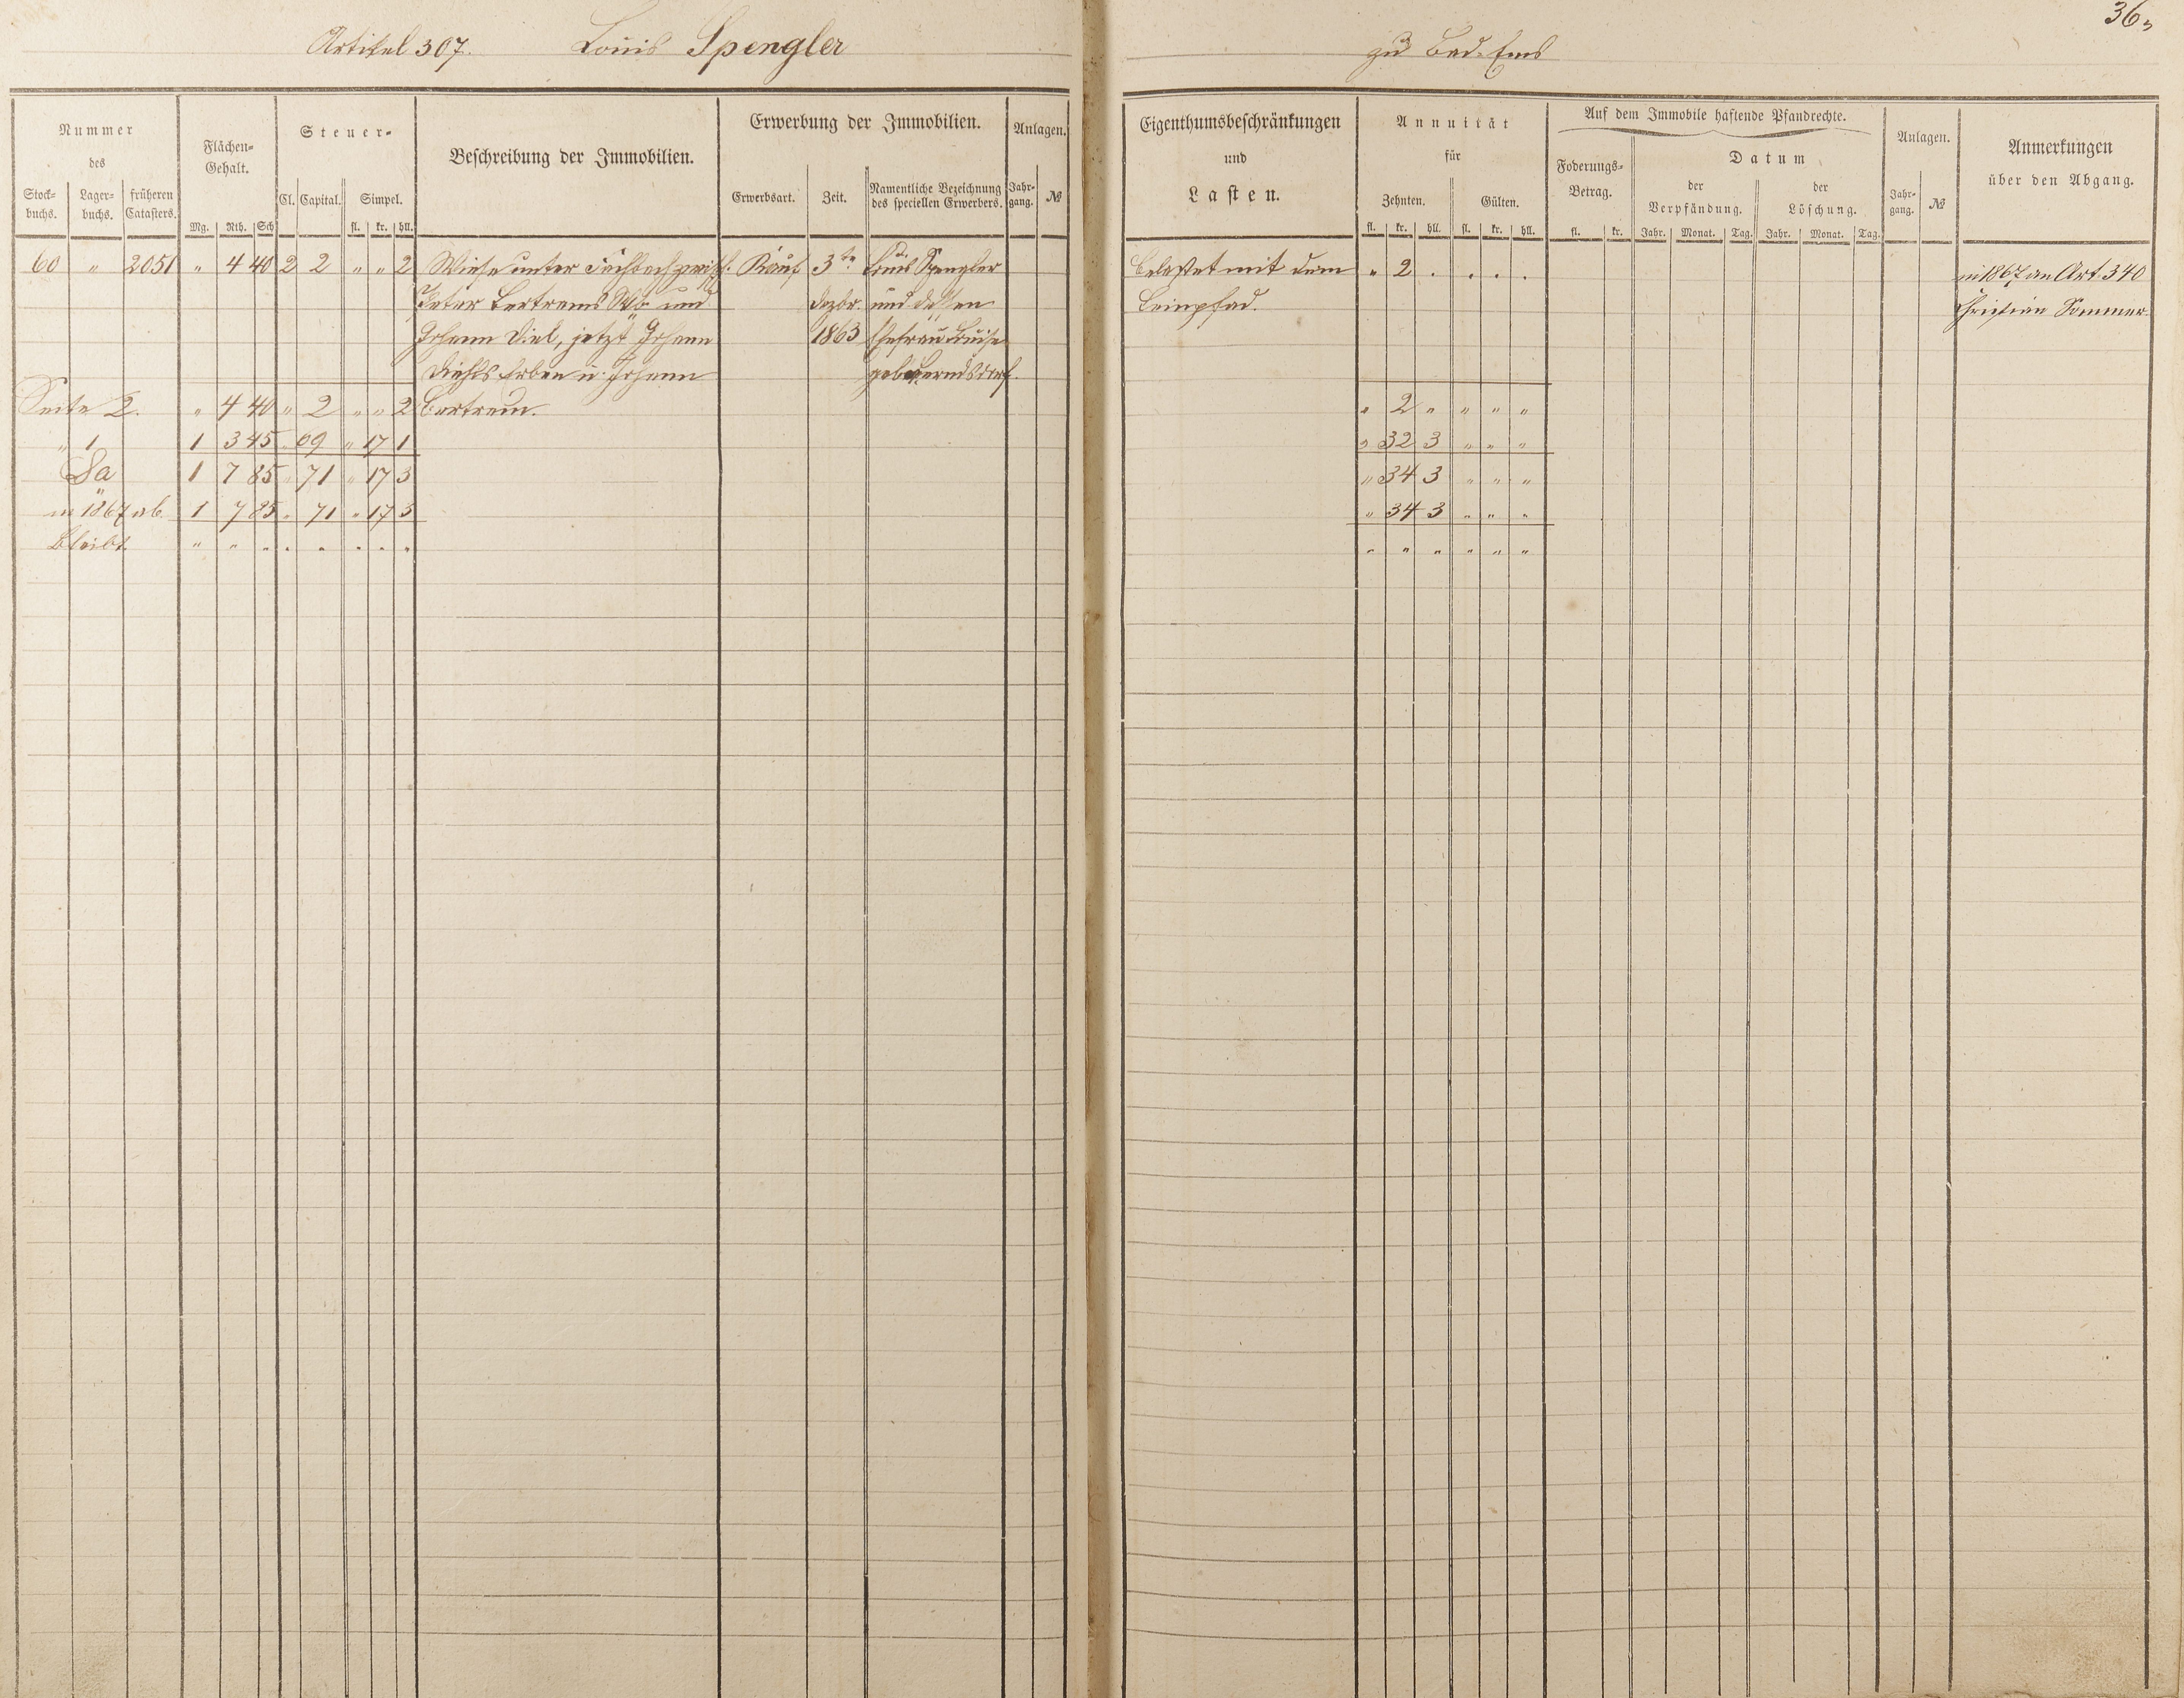 36,,
Artikel 307. Louis Spengler zu Bad-Ems
Nummer
des
Stock-
buchs.
Lager-
buchs.
früheren
Catasters.
Flächen-
Gehalt.
Mg. Rth. Sch
Steuer-
Cl. Capital. Simpel.
fl. kr. hll.
Beschreibung der Immobilien.
Erwerbung der Immobilien.
Erwerbsart. Zeit.
Namentliche Bezeichnung
des speciellen Erwerbers.
Anlagen.
Jahr-
gang.
№
Eigenthumsbeschränkungen
und
Lasten.
Annuität
für
Zehnten. Gülten.
fl. kr. hll. fl. kr. hll.
Auf dem Immobile haftende Pfandrechte.
Foderungs-
Betrag.
fl. kr.
Datum
der
Verpfändung.
der
Löschung.
Jahr. Monat. Tag. Jahr. Monat. Tag.
Anlagen.
Jahr-
gang.
№
Anmerkungen
über den Abgang.
60 " 2051 " 4 40 2 2 " " 2 Wiese unter zwisch. Kauf 3te Louis Spengler belastet mit dem " 2 . . . . in 1867 an Art. 340
Peter Bertrams Wb und Dezbr. und dessen Leinpfad. Christian Sommer.
Johann Diel, jetzt Johann 1863 Ehefrau Louise
Diehls Erben u. Johann geb. Berndsdorf.
Seite 2. " 4 40 " 2 " " 2 Bertram. " 2 " " " "
" 1 1 3 45 " 69 " 17 1 " 32 3 " " "
Sa 1 7 85 " 71 " 17 3 " 34 3 " " "
in 1867 ab 1 7 85 " 71 " 17 3 " 34 3 " " "
bleibt " " " " " " " " " " " " " "